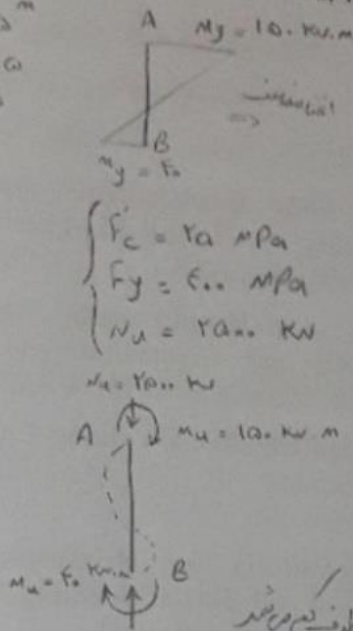 A  My = ۱۵۰ KN.m
=>
B
My = ۴۰
F'c = ۲۵ MPa
Fy = ۴۰۰ MPa
Nu = ۲۵۰۰ KN
Nu = ۲۵۰۰ KN
A  Mu = ۱۵۰ KN m
Mu = ۴۰ KN.m  B